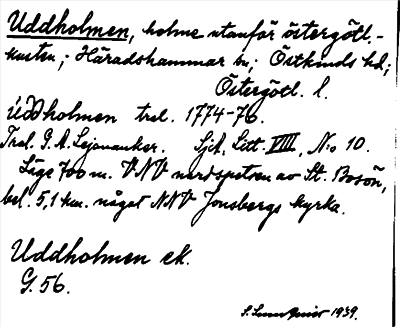 Uddholmen, holme utanför östergötl.-
kusten; Häradshammar sn; Östkinds hd;
Östergötl. l.
Úddholmen trol. 1774-76.
Trol. G. A. Lejonanker. Sjk. Litt. VIII, N:o 10.
Läge 700 m. VNV nordspetsen av St. Bosön,
bel. 5,1 km. något NNV Jonsbergs kyrka.
Uddholmen ek.
G. 56.
S. 1939.